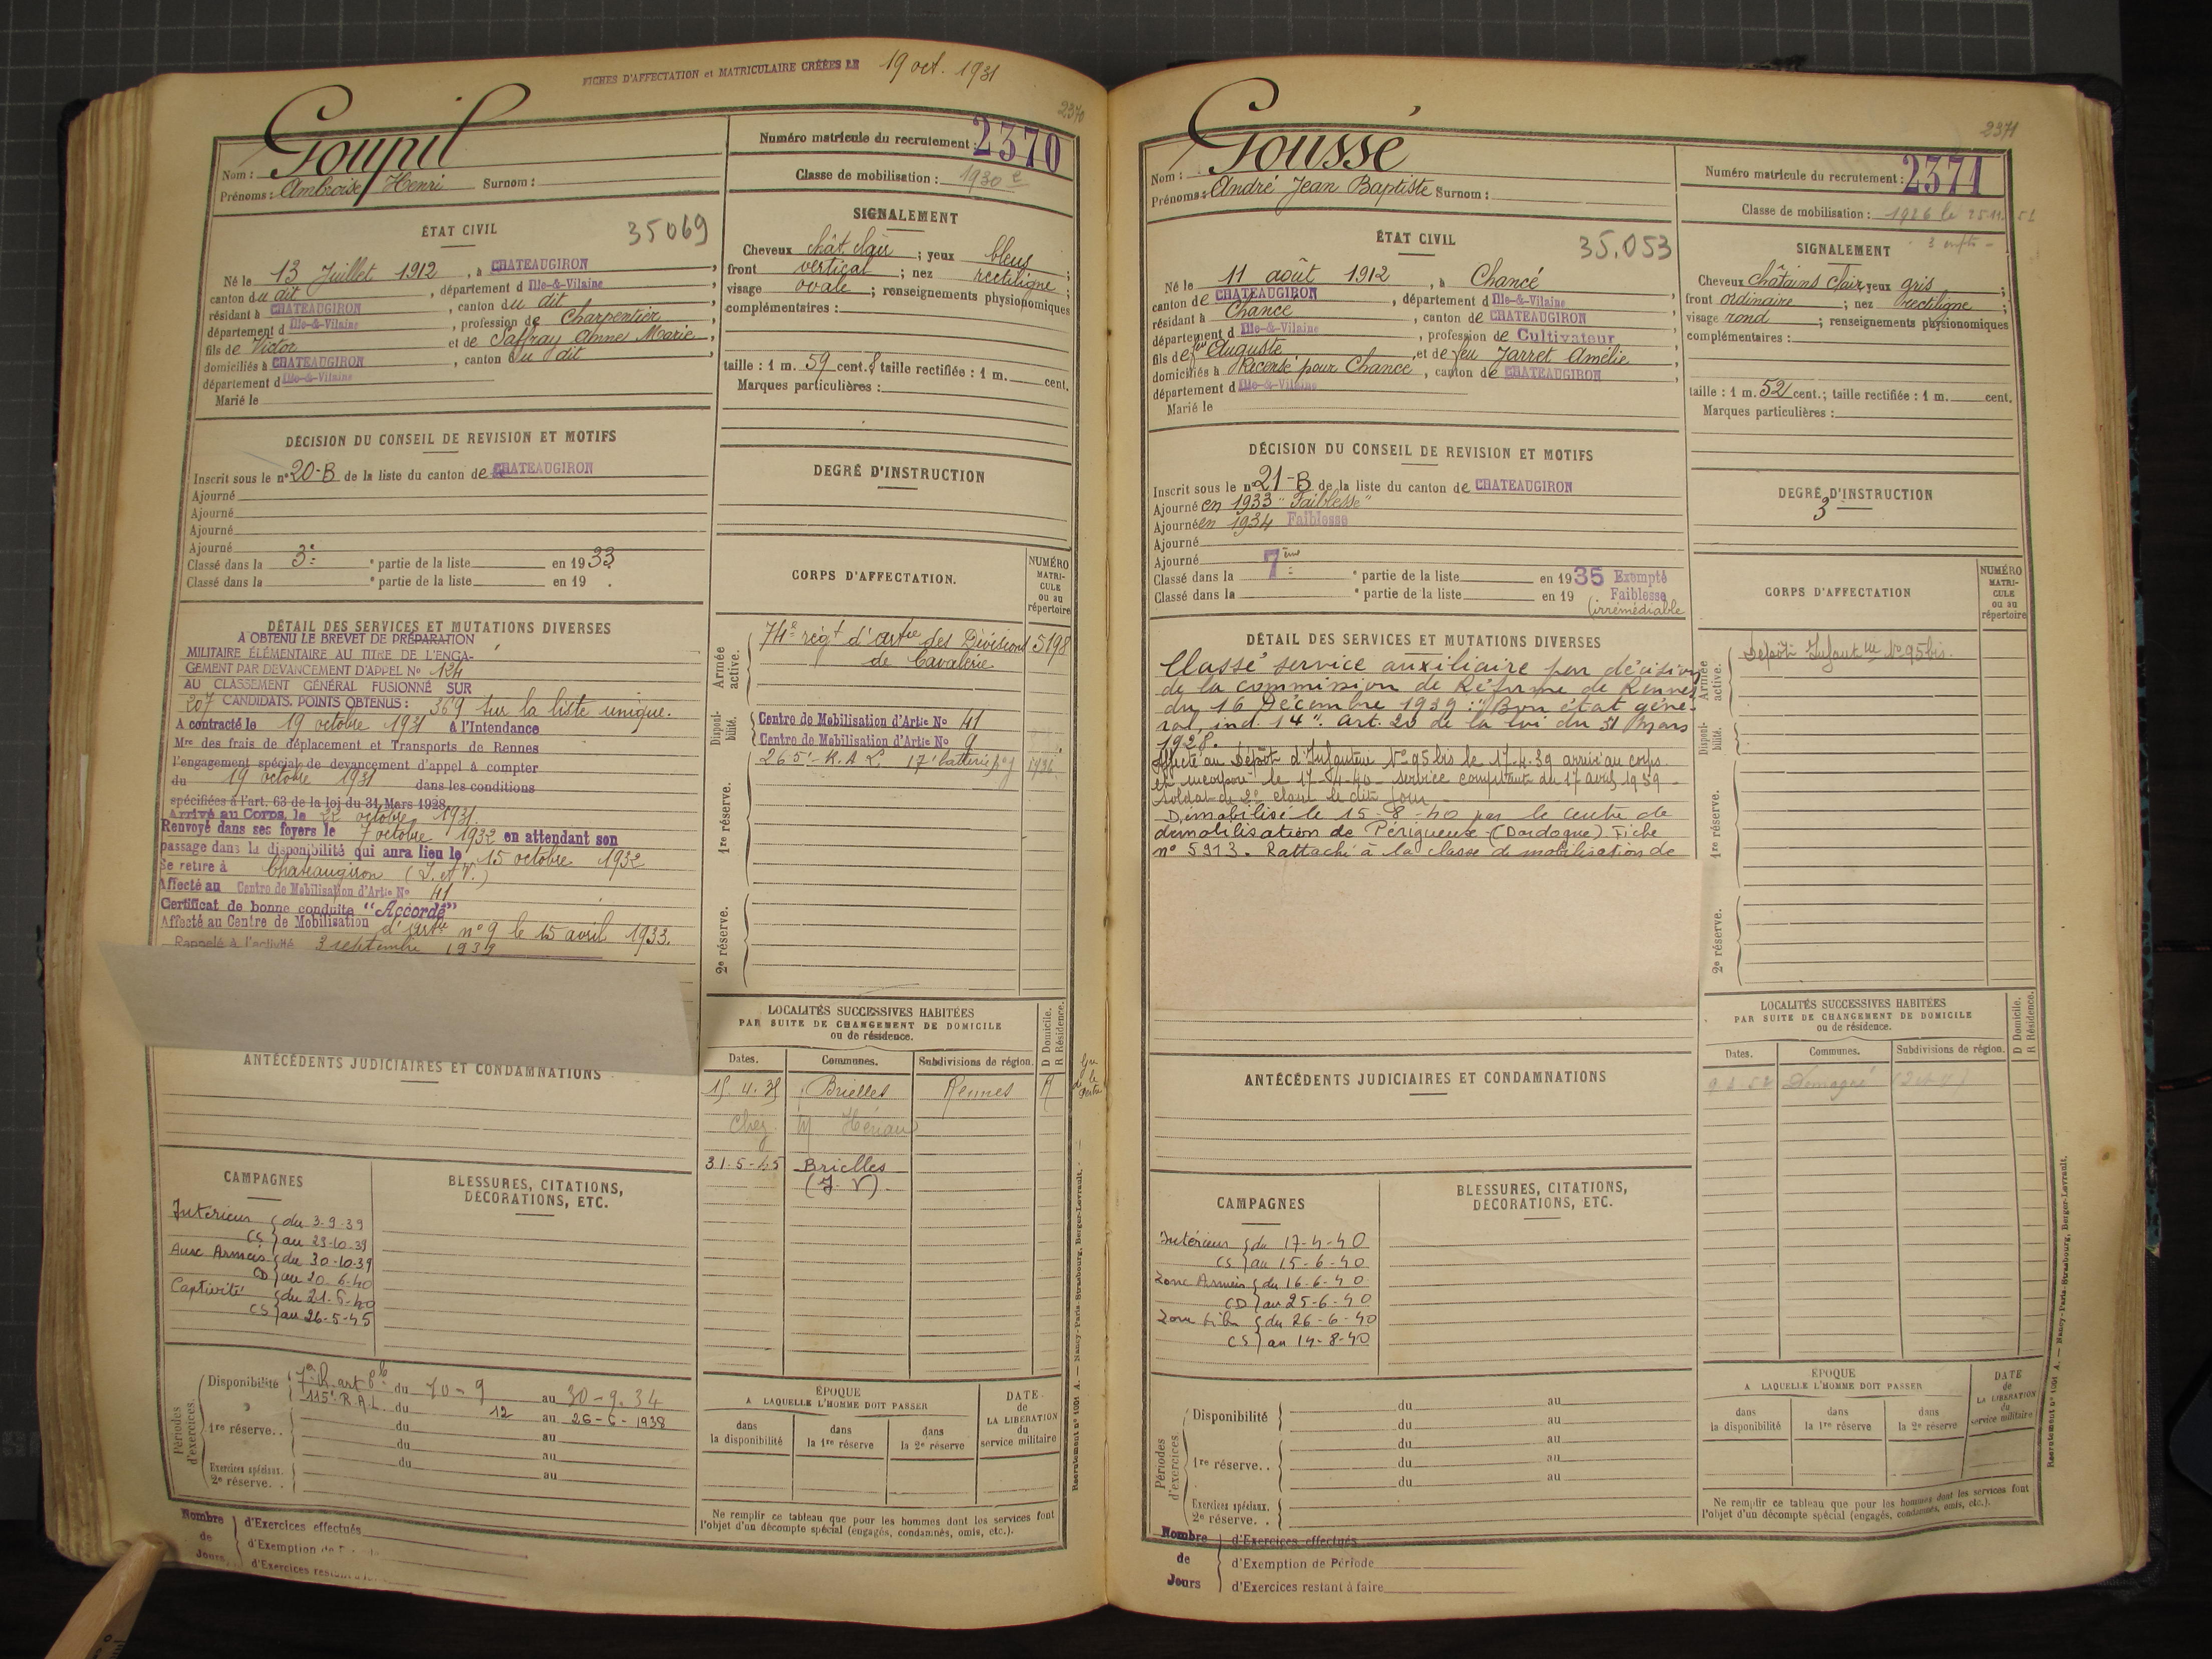 FICHES D'AFFECTATION et MATRICULAIRE CRÉÉES LE 19 oct. 1931
2370
Goupil
Nom :
Prénoms : Ambroise Henri Surnom :
Numéro matricule du recrutement : 2370
Classe de mobilisation : 1930
ÉTAT CIVIL
35069
Né le 13 Juillet 1912, à CHATEAUGIRON,
canton du dit, département d Ille-&-Vilaine
résidant à CHATEAUGIRON, canton du dit,
département d Ille-&-Vilaine, profession de Charpentier,
fils de Victor et de Saffray Anne Marie,
domiciliés à CHATEAUGIRON, canton du dit,
département d Ille-&-Vilaine
Marié le
SIGNALEMENT
Cheveux chât. clair ; yeux bleus ;
front vertical ; nez rectiligne ;
visage ovale ; renseignements physionomiques
complémentaires :
taille : 1 m. 59 cent. 8 taille rectifiée : 1 m. cent.
Marques particulières :
DÉCISION DU CONSEIL DE REVISION ET MOTIFS
Inscrit sous le n° 20-B de la liste du canton de CHATEAUGIRON
Ajourné
Ajourné
Ajourné
Ajourné
Classé dans la 3e ° partie de la liste en 1933
Classé dans la ° partie de la liste en 19 .
DEGRÉ D'INSTRUCTION
DÉTAIL DES SERVICES ET MUTATIONS DIVERSES
A OBTENU LE BREVET DE PRÉPARATION
MILITAIRE ÉLÉMENTAIRE AU TITRE DE L'ENGA-
GEMENT PAR DEVANCEMENT D'APPEL No 134
AU CLASSEMENT GÉNÉRAL FUSIONNÉ SUR
207 CANDIDATS. POINTS OBTENUS : 369 sur la liste unique.
A contracté le 19 octobre 1931 à l'Intendance
Mre des frais de déplacement et Transports de Rennes
l'engagement spécial de devancement d'appel à compter
du 19 octobre 1931 dans les conditions
spécifiées à l'art. 63 de la loi du 31 Mars 1928.
Arrivé au Corps, le 22 octobre 1931.
Renvoyé dans ses foyers le 7 octobre 1932 en attendant son
passage dans la disponibilité qui aura lieu le 15 octobre 1932
Se retire à Chateaugiron (I. et V.)
Affecté au Centre de Mobilisation d'Artie No 41
Certificat de bonne conduite "Accordé"
Affecté au Centre de Mobilisation d'artie n° 9 le 15 avril 1933.
Rappelé à l'activité 3 septembre 1939
CORPS D'AFFECTATION.
NUMÉRO MATRI-CULE ou au répertoire
Armée active.
74e régt d'artie des Divisions 5198
de Cavalerie
Disponi-bilité.
Centre de Mobilisation d'Artie No 41
Centre de Mobilisation d'Artie No 9
1re réserve.
265e R.A.L. 17e batterie
2e réserve.
LOCALITÉS SUCCESSIVES HABITÉES
PAR SUITE DE CHANGEMENT DE DOMICILE
ou de résidence.
D Domicile.
R Résidence.
Dates. Communes. Subdivisions de région.
15.4.35 Brielles Rennes R
Chez M Hériau
31-5-45 Brielles
(I. V)
ANTÉCÉDENTS JUDICIAIRES ET CONDAMNATIONS
CAMPAGNES
Intérieur du 3-9-39
CS au 23-10-39
Aux Armées du 30-10-39
CD au 20-6-40
Captivité du 21-6-40
CS au 26-5-45
BLESSURES, CITATIONS,
DÉCORATIONS, ETC.
Périodes d'exercices.
Disponibilité du 10-9 au 30-9-34
115e R.A.L. du 12 au 26-6-1938
1re réserve. . du au
du au
du au
Exercices spéciaux.
2e réserve. . au
ÉPOQUE
A LAQUELLE L'HOMME DOIT PASSER
dans la disponibilité
dans la 1re réserve
dans la 2e réserve
DATE de LA LIBÉRATION du service militaire
Ne remplir ce tableau que pour les hommes dont les services font
l'objet d'un décompte spécial (engagés, condamnés, omis, etc.).
Nombre de Jours
d'Exercices effectués
d'Exemption de
d'Exercices
Recrutement n° 1001 A. — Nancy-Paris-Strasbourg, Berger-Levrault.
2371
Goussé
Nom :
Prénoms : André Jean Baptiste Surnom :
Numéro matricule du recrutement : 2371
Classe de mobilisation : 1926 le 25.11.51
ÉTAT CIVIL
35.053
Né le 11 août 1912, à Chancé
canton de CHATEAUGIRON, département d Ille-&-Vilaine
résidant à Chancé, canton de CHATEAUGIRON
département d Ille-&-Vilaine, profession de Cultivateur
fils de feu Auguste, et de feu Jarret Amélie
domiciliés à Racorsé pour Chancé, canton de CHATEAUGIRON
département d Ille-&-Vilaine
Marié le
SIGNALEMENT
Cheveux châtains clair, yeux gris ;
front ordinaire ; nez rectiligne ;
visage rond ; renseignements physionomiques
complémentaires :
taille : 1 m. 52 cent. ; taille rectifiée : 1 m. cent.
Marques particulières :
DÉCISION DU CONSEIL DE REVISION ET MOTIFS
Inscrit sous le n° 21-B de la liste du canton de CHATEAUGIRON
Ajourné en 1933 "Faiblesse"
Ajourné en 1934 Faiblesse
Ajourné
Ajourné
Classé dans la 7ème ° partie de la liste en 1935 Exempté
Classé dans la ° partie de la liste en 19 Faiblesse
(irrémédiable
DEGRÉ D'INSTRUCTION
3
DÉTAIL DES SERVICES ET MUTATIONS DIVERSES
Classé service auxiliaire par décision
de la commission de Réforme de Rennes
du 16 Décembre 1939 : "Bon état géné-
ral, ind. 14". Art. 20 de la loi du 31 Mars
1928.
Affecté au Dépôt d'Infanterie N° 95 bis le 17.4.39 arrivé au corps
et incorporé le 17-4-40 service comptant du 17 avril 1939
soldat de 2e classe le dit jour
Démobilisé le 15-8-40 par le centre de
démobilisation de Périgueux (Dordogne). Fiche
n° 5913. Rattaché à la classe de mobilisation de
CORPS D'AFFECTATION
NUMÉRO MATRI-CULE ou au répertoire
Armée active.
Dépôt Infanterie N° 95 bis.
Disponi-bilité.
1re réserve.
2e réserve.
LOCALITÉS SUCCESSIVES HABITÉES
PAR SUITE DE CHANGEMENT DE DOMICILE
ou de résidence.
D Domicile.
R Résidence.
Dates. Communes. Subdivisions de région.
Domagné
ANTÉCÉDENTS JUDICIAIRES ET CONDAMNATIONS
CAMPAGNES
Intérieur du 17-4-40
CS au 15-6-40
Zone Armées du 16-6-40
CD au 25-6-40
Zone Libre du 26-6-40
CS au 14-8-40
BLESSURES, CITATIONS,
DÉCORATIONS, ETC.
Périodes d'exercices.
Disponibilité du au
du au
1re réserve. . du au
du au
Exercices spéciaux.
2e réserve. .
ÉPOQUE
A LAQUELLE L'HOMME DOIT PASSER
dans la disponibilité
dans la 1re réserve
dans la 2e réserve
DATE de LA LIBÉRATION du service militaire
Ne remplir ce tableau que pour les hommes dont les services font
l'objet d'un décompte spécial (engagés, condamnés, omis, etc.).
Nombre de Jours
d'Exercices effectués
d'Exemption de Période
d'Exercices restant à faire
Recrutement n° 1001 A. — Nancy-Paris-Strasbourg, Berger-Levrault.